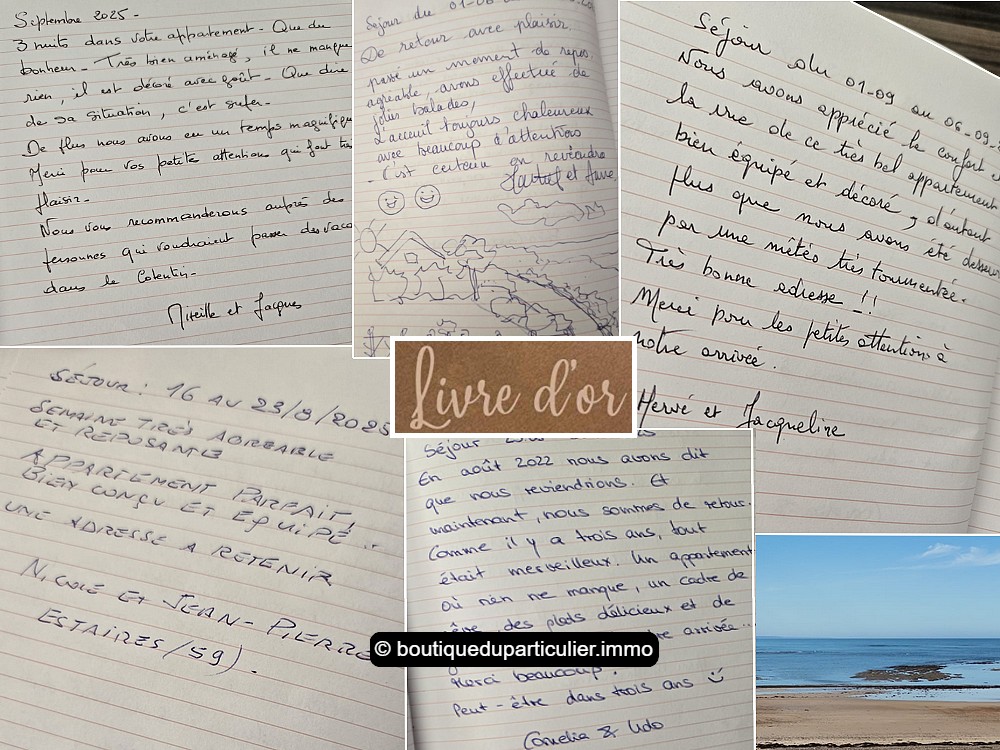 Septembre 2025 -
3 nuits dans votre appartement. Que du
bonheur - Très bien aménagé, il ne manque
rien, il est décoré avec goût - Que dire
de sa situation, c'est super -
De plus nous avons eu un temps magnifique
Merci pour vos petites attentions qui font très
plaisir -
Nous vous recommanderons auprès des
personnes qui voudraient passer des vaca
dans le Cotentin -
Mireille et Jacques
Séjour du 01-0
De retour avec plaisir.
passé un moment de repos
agréable, avons effectué de
jolies balades,
L'accueil toujours chaleureux
avec beaucoup d'attentions
- C'est certain on reviendra
et Anne
Séjour du 01-09 au 06-09-
Nous avons apprécié le confort
la vue de ce très bel appartement
bien équipé et décoré, d'autant
plus que nous avons été desservis
par une météo très tourmentée.
Très bonne adresse !!
Merci pour les petites attentions à
notre arrivée.
Hervé et Jacqueline
Livre d'or
SÉJOUR : 16 AU 23/8/2025
SEMAINE TRÈS AGRÉABLE
ET REPOSANTE
APPARTEMENT PARFAIT,
BIEN CONÇU ET ÉQUIPÉ..
UNE ADRESSE A RETENIR
NICOLE ET JEAN-PIERRE
ESTAIRES (59).
Séjour
En août 2022 nous avons dit
que nous reviendrions. Et
maintenant, nous sommes de retour.
Comme il y a trois ans, tout
était merveilleux. Un appartement
où rien ne manque, un cadre de
rêve, des plats délicieux et de
arrivée...
Merci beaucoup!
Peut-être dans trois ans
Cornelia & Udo
© boutiqueduparticulier.immo